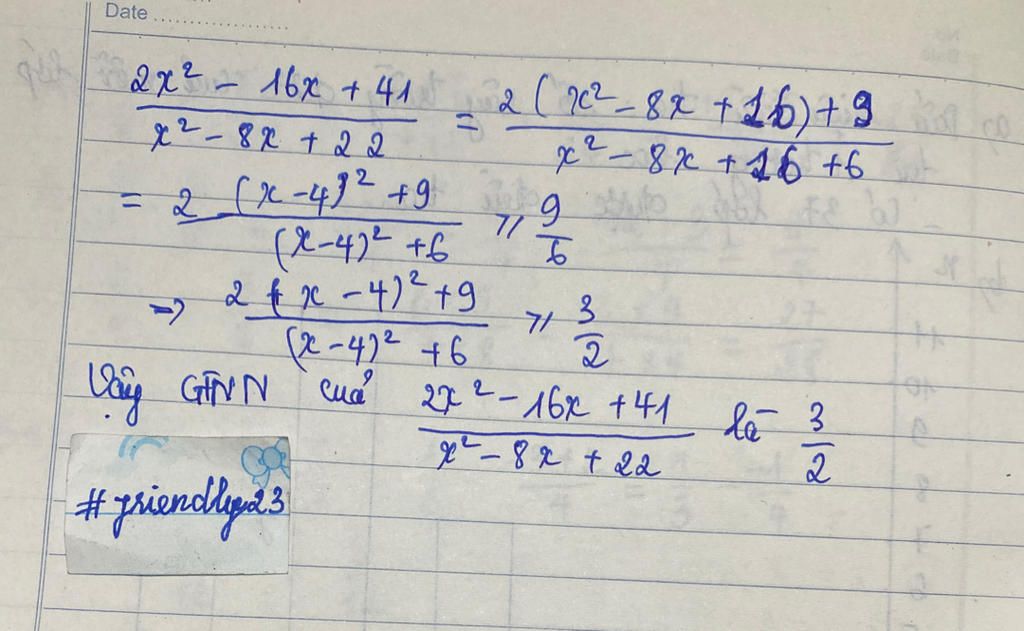 Date
2x² - 16x + 41 / x² - 8x + 22 = 2 (x² - 8x + 16) + 9 / x² - 8x + 16 + 6
= 2 (x - 4)² + 9 / (x - 4)² + 6 ≥ 9/6
⇒ 2 (x - 4)² + 9 / (x - 4)² + 6 ≥ 3/2
Vậy GTNN của 2x² - 16x + 41 / x² - 8x + 22 là 3/2
#friendly23